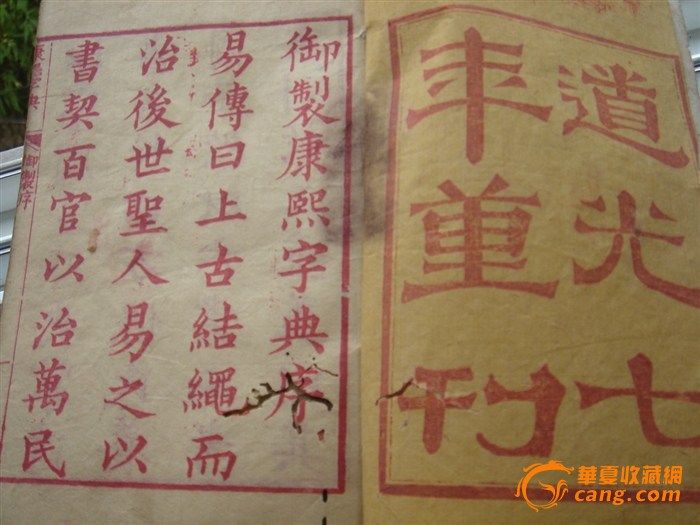 道光七
年重刊
御製康熙字典序
易傳曰上古結繩而
治後世聖人易之以
書契百官以治萬民
康熙字典
御製序
華夏收藏網
cang.com